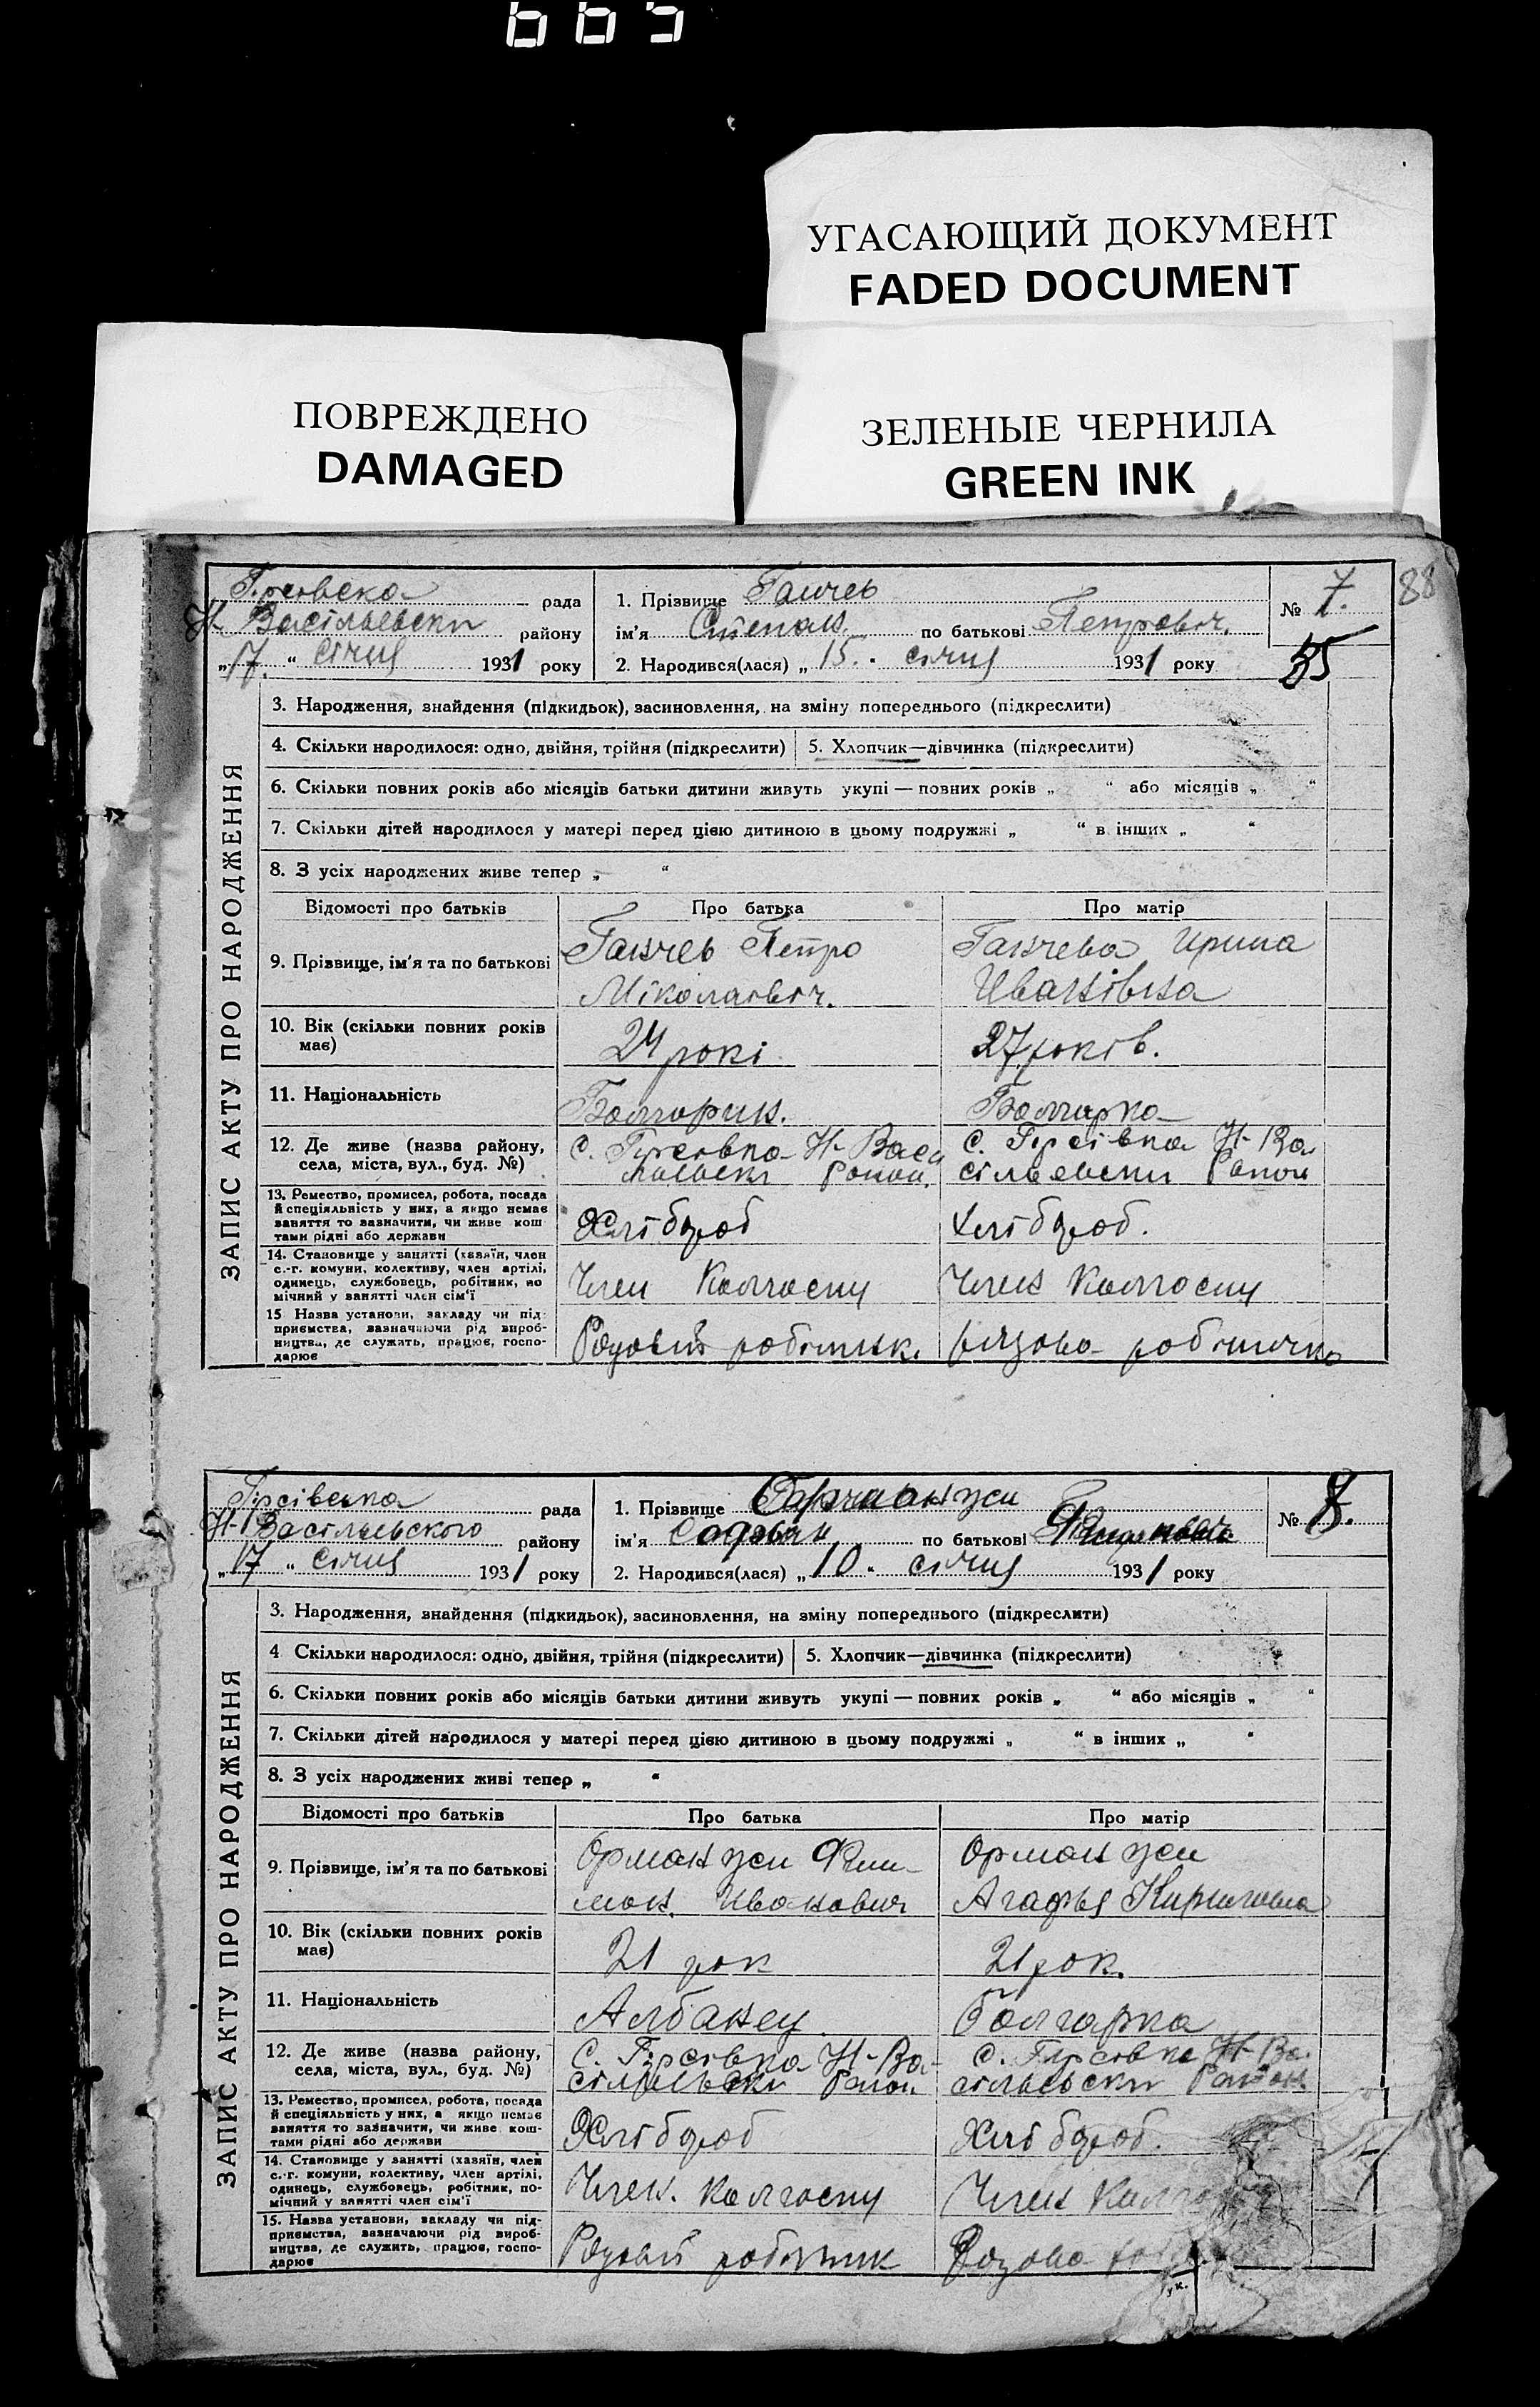 665
УГАСАЮЩИЙ ДОКУМЕНТ
FADED DOCUMENT
ПОВРЕЖДЕНО
DAMAGED
ЗЕЛЕНЫЕ ЧЕРНИЛА
GREEN INK
88
Гірсівска рада
Н Васільевски району
„17. “ січня 1931 року
1. Прізвище Ганчев
ім'я Степан по батькові Петрович.
2. Народився(лася) „15. “ січня 1931 року
№ 7.
35
ЗАПИС АКТУ ПРО НАРОДЖЕННЯ
3. Народження, знайдення (підкидьок), засиновлення, на зміну попереднього (підкреслити)
4. Скільки народилося: одно, двійня, трійня (підкреслити) 5. Хлопчик—дівчинка (підкреслити)
6. Скільки повних років або місяців батьки дитини живуть укупі — повних років „ “ або місяців „ “
7. Скільки дітей народилося у матері перед цією дитиною в цьому подружжі „ “ в інших „ “
8. З усіх народжених живе тепер „ “
Відомості про батьків Про батька Про матір
9. Прізвище, ім'я та по батькові Ганчев Петро Міколаєвіч. Ганчева Ирина Иванівна
10. Вік (скільки повних років має) 24 рокі 27 років.
11. Національність Болгарин. Болгарка
12. Де живе (назва району, села, міста, вул., буд. №) с. Гірсовка Н-Васильевски Район. с. Гірсівка Н-Васільевски Район
13. Ремество, промисел, робота, посада й спеціяльність у них, а якщо немає заняття то зазначити, чи живе коштами рідні або держави Хлібороб Хлібороб.
14. Становище у занятті (хазяїн, член с.-г. комуни, колективу, член артілі, одинець, службовець, робітник, помічний у занятті член сім'ї Член Колгоспу Член Колгоспу
15 Назва установи, закладу чи підприємства, зазначаючи рід виробництва, де служить, працює, господарює Рядовий робітник. рядова робітнічка
Гірсівска рада
Н-Васільевского району
„17 “ січня 1931 року
1. Прізвище
ім'я по батькові
2. Народився(лася) „10 “ січня 1931 року
№ 8.
ЗАПИС АКТУ ПРО НАРОДЖЕННЯ
3. Народження, знайдення (підкидьок), засиновлення, на зміну попереднього (підкреслити)
4 Скільки народилося: одно, двійня, трійня (підкреслити) 5. Хлопчик—дівчинка (підкреслити)
6. Скільки повних років або місяців батьки дитини живуть укупі — повних років „ “ або місяців „ “
7. Скільки дітей народилося у матері перед цією дитиною в цьому подружжі „ “ в інших „ “
8. З усіх народжених живі тепер „ “
Відомості про батьків Про батька Про матір
9. Прізвище, ім'я та по батькові Орманжи Филимон. Иванович Орманжи Агафья Кириловна
10. Вік (скільки повних років має) 21 рок 21 рок.
11. Національність Албанец Болгарка
12. Де живе (назва району, села, міста, вул., буд. №) С. Гірсовка Н-Васільевски Район с. Гирсовка Н-Васільевски Район
13. Ремество, промисел, робота, посада й спеціяльність у них, а якщо немає заняття то зазначити, чи живе коштами рідні або держави Хлібороб Хлібороб.
14. Становище у занятті (хазяїн, член с.-г. комуни, колективу, член артілі, одинець, службовець, робітник, помічний у занятті член сім'ї Член. Колгоспу Член
15. Назва установи, закладу чи підприємства, зазначаючи рід виробництва, де служить, працює, господарює Рядовий робітник Рядова